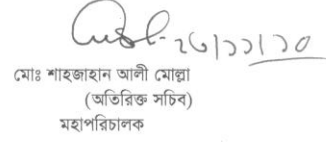 মোঃ শাহজাহান আলী মোল্লা
(অতিরিক্ত সচিব)
মহাপরিচালক